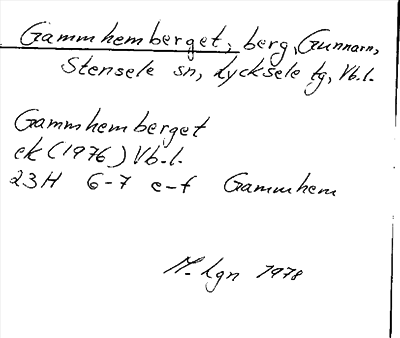 Gammhemberget, berg, Gunnarn,
Stensele sn, Lycksele tg, Vb.l.
Gammhemberget
ek (1976) Vb.l.
23H 6-7 e-f Gammhem
M. Lgn 1978